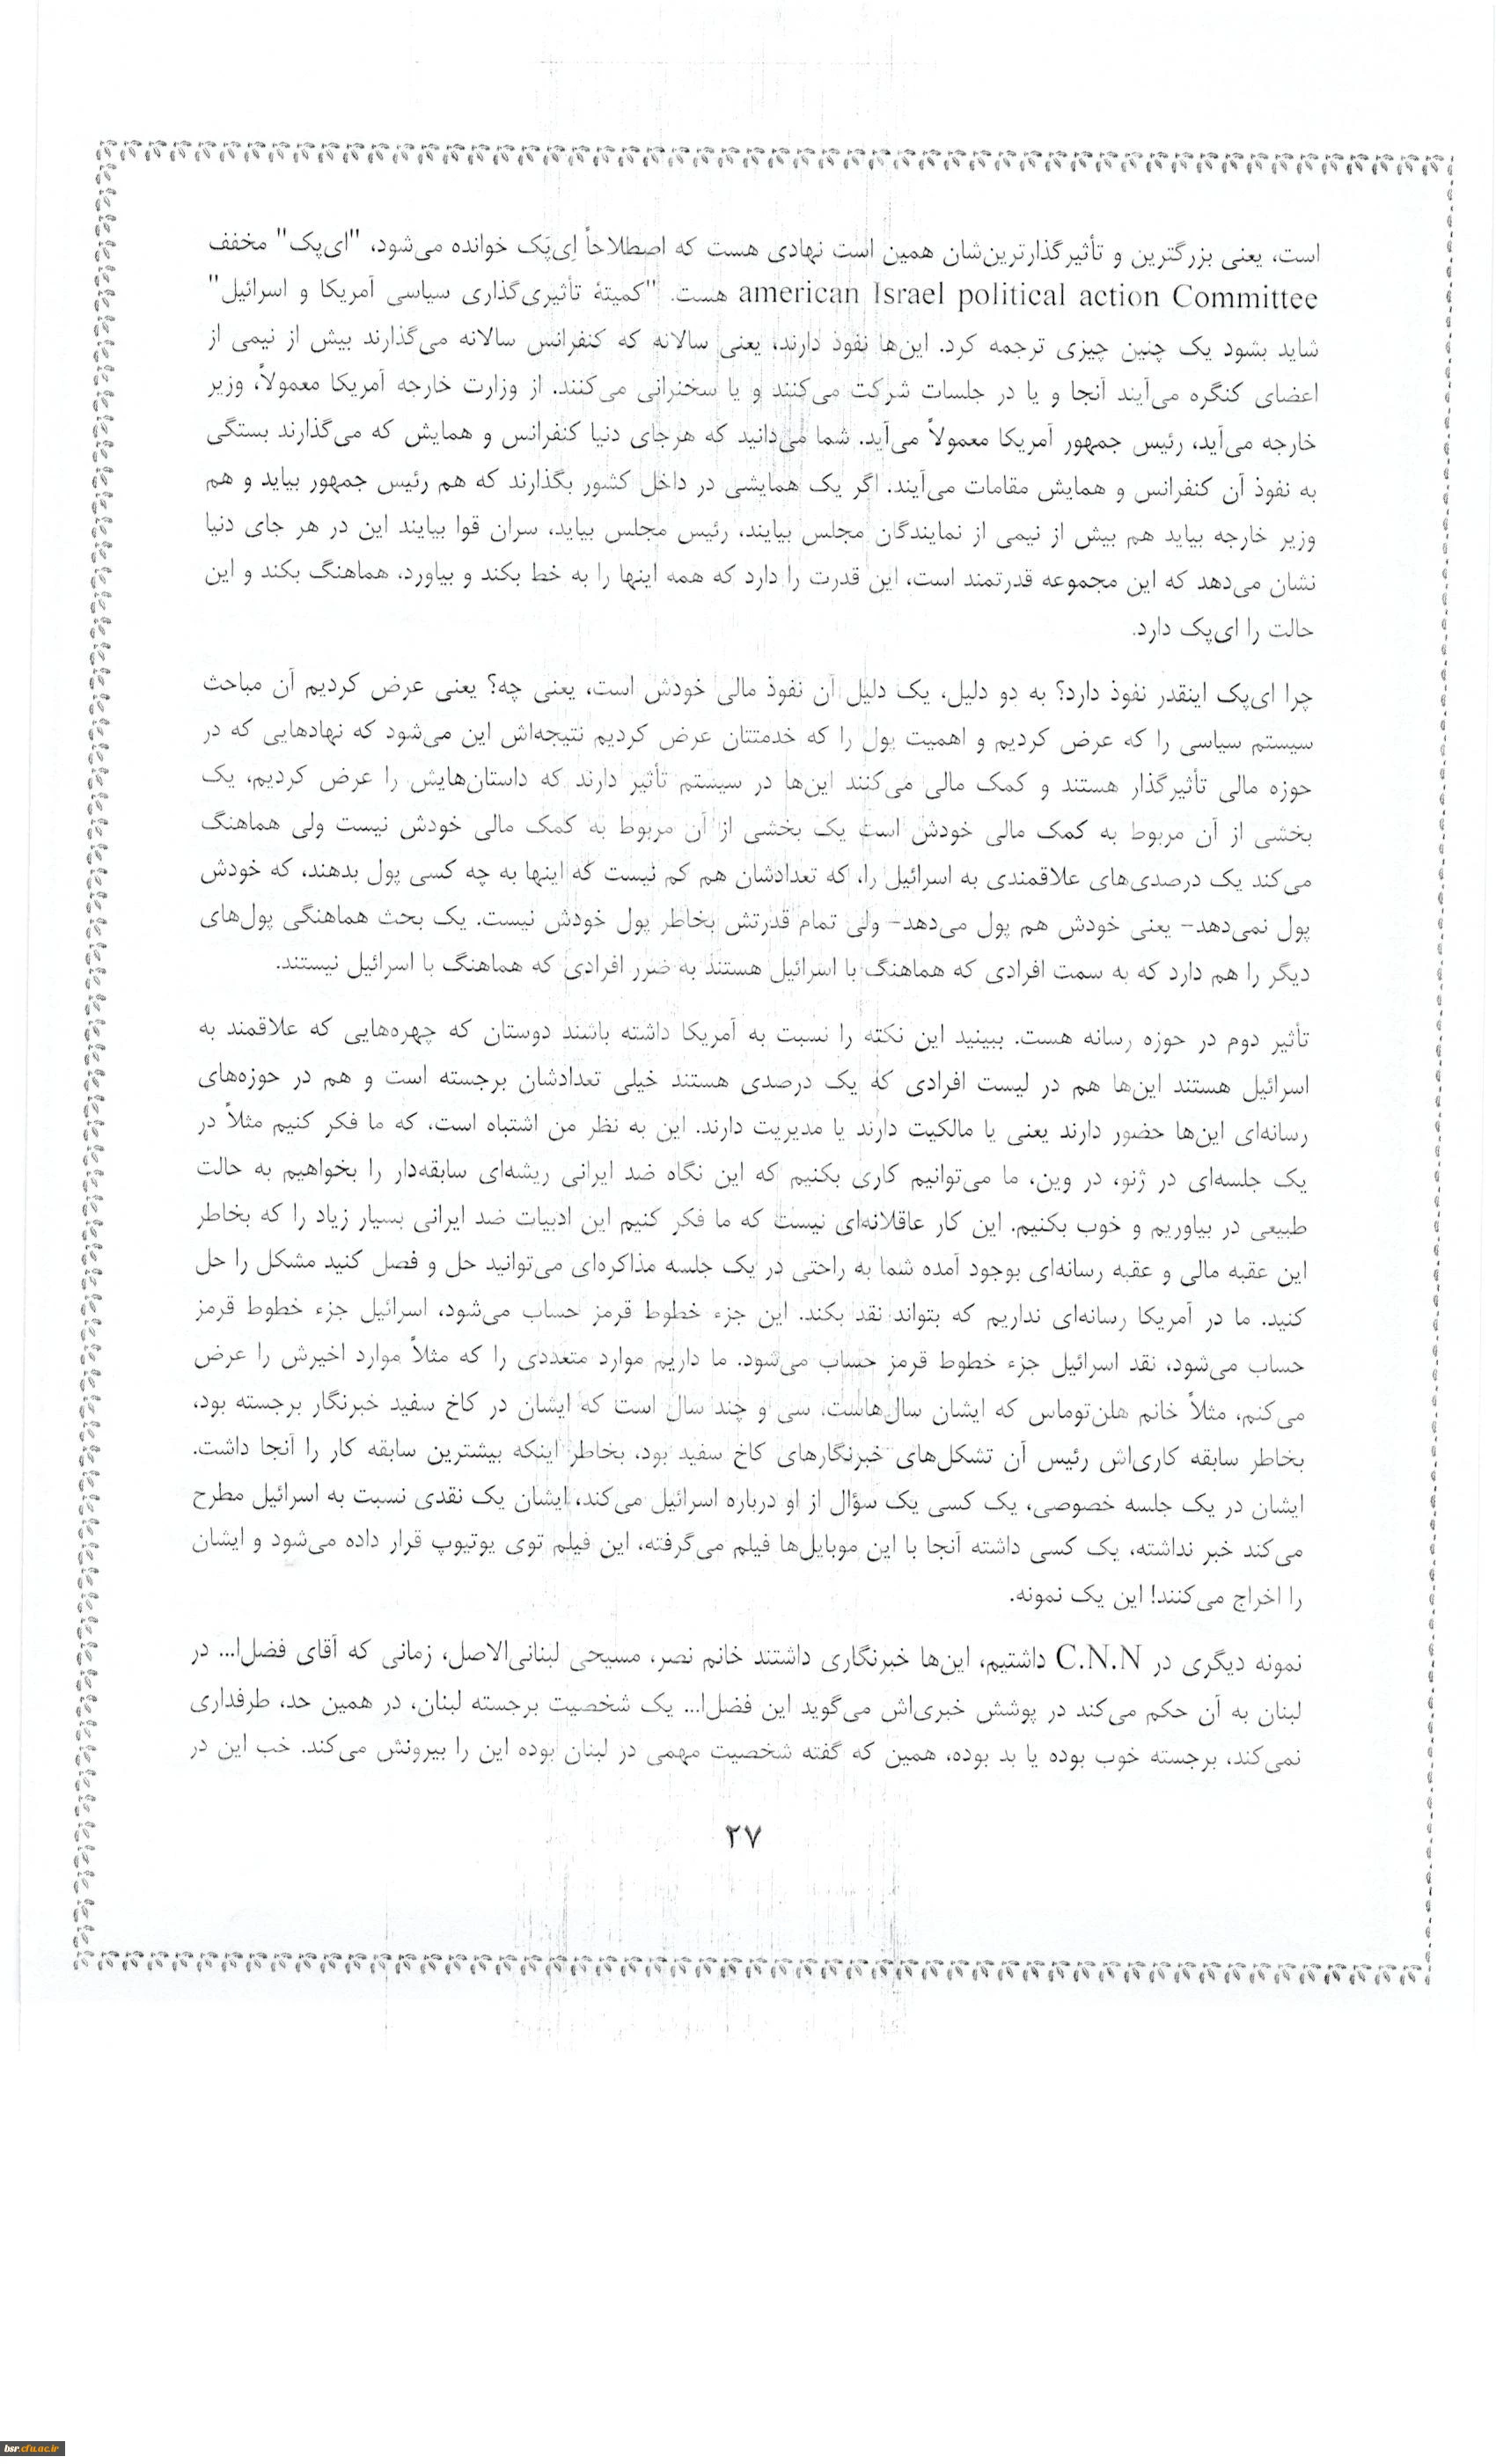 است، یعنی بزرگترین و تأثیرگذارترین‌شان همین است نهادی هست که اصطلاحاً اِی‌پَک خوانده می‌شود، "ای‌پک" مخفف
american Israel political action Committee هست. "کمیتهٔ تأثیری‌گذاری سیاسی آمریکا و اسرائیل"
شاید بشود یک چنین چیزی ترجمه کرد. این‌ها نفوذ دارند، یعنی سالانه که کنفرانس سالانه می‌گذارند بیش از نیمی از
اعضای کنگره می‌آیند آنجا و یا در جلسات شرکت می‌کنند و یا سخنرانی می‌کنند. از وزارت خارجه آمریکا معمولاً، وزیر
خارجه می‌آید، رئیس جمهور آمریکا معمولاً می‌آید. شما می‌دانید که هرجای دنیا کنفرانس و همایش که می‌گذارند بستگی
به نفوذ آن کنفرانس و همایش مقامات می‌آیند. اگر یک همایشی در داخل کشور بگذارند که هم رئیس جمهور بیاید و هم
وزیر خارجه بیاید هم بیش از نیمی از نمایندگان مجلس بیایند، رئیس مجلس بیاید، سران قوا بیایند این در هر جای دنیا
نشان می‌دهد که این مجموعه قدرتمند است، این قدرت را دارد که همه اینها را به خط بکند و بیاورد، هماهنگ بکند و این
حالت را ای‌پک دارد.
چرا ای‌پک اینقدر نفوذ دارد؟ به دو دلیل، یک دلیل آن نفوذ مالی خودش است، یعنی چه؟ یعنی عرض کردیم آن مباحث
سیستم سیاسی را که عرض کردیم و اهمیت پول را که خدمتتان عرض کردیم نتیجه‌اش این می‌شود که نهادهایی که در
حوزه مالی تأثیرگذار هستند و کمک مالی می‌کنند این‌ها در سیستم تأثیر دارند که داستان‌هایش را عرض کردیم، یک
بخشی از آن مربوط به کمک مالی خودش است یک بخشی از آن مربوط به کمک مالی خودش نیست ولی هماهنگ
می‌کند یک درصدی‌های علاقمندی به اسرائیل را، که تعدادشان هم کم نیست که اینها به چه کسی پول بدهند، که خودش
پول نمی‌دهد- یعنی خودش هم پول می‌دهد- ولی تمام قدرتش بخاطر پول خودش نیست. یک بحث هماهنگی پول‌های
دیگر را هم دارد که به سمت افرادی که هماهنگ با اسرائیل هستند به ضرر افرادی که هماهنگ با اسرائیل نیستند.
تأثیر دوم در حوزه رسانه هست. ببینید این نکته را نسبت به آمریکا داشته باشند دوستان که چهره‌هایی که علاقمند به
اسرائیل هستند این‌ها هم در لیست افرادی که یک درصدی هستند خیلی تعدادشان برجسته است و هم در حوزه‌های
رسانه‌ای این‌ها حضور دارند یعنی یا مالکیت دارند یا مدیریت دارند. این به نظر من اشتباه است، که ما فکر کنیم مثلاً در
یک جلسه‌ای در ژنو، در وین، ما می‌توانیم کاری بکنیم که این نگاه ضد ایرانی ریشه‌ای سابقه‌دار را بخواهیم به حالت
طبیعی در بیاوریم و خوب بکنیم. این کار عاقلانه‌ای نیست که ما فکر کنیم این ادبیات ضد ایرانی بسیار زیاد را که بخاطر
این عقبه مالی و عقبه رسانه‌ای بوجود آمده شما به راحتی در یک جلسه مذاکره‌ای می‌توانید حل و فصل کنید مشکل را حل
کنید. ما در آمریکا رسانه‌ای نداریم که بتواند نقد بکند. این جزء خطوط قرمز حساب می‌شود، اسرائیل جزء خطوط قرمز
حساب می‌شود، نقد اسرائیل جزء خطوط قرمز حساب می‌شود. ما داریم موارد متعددی را که مثلاً موارد اخیرش را عرض
می‌کنم، مثلاً خانم هلن‌توماس که ایشان سال‌هاست، سی و چند سال است که ایشان در کاخ سفید خبرنگار برجسته بود،
بخاطر سابقه کاری‌اش رئیس آن تشکل‌های خبرنگارهای کاخ سفید بود، بخاطر اینکه بیشترین سابقه کار را آنجا داشت.
ایشان در یک جلسه خصوصی، یک کسی یک سؤال از او درباره اسرائیل می‌کند، ایشان یک نقدی نسبت به اسرائیل مطرح
می‌کند خبر نداشته، یک کسی داشته آنجا با این موبایل‌ها فیلم می‌گرفته، این فیلم توی یوتیوپ قرار داده می‌شود و ایشان
را اخراج می‌کنند! این یک نمونه.
نمونه دیگری در C.N.N داشتیم، این‌ها خبرنگاری داشتند خانم نصر، مسیحی لبنانی‌الاصل، زمانی که آقای فضل‌ا... در
لبنان به آن حکم می‌کند در پوشش خبری‌اش می‌گوید این فضل‌ا... یک شخصیت برجسته لبنان، در همین حد، طرفداری
نمی‌کند، برجسته خوب بوده یا بد بوده، همین که گفته شخصیت مهمی در لبنان بوده این را بیرونش می‌کند. خب این در
۲۷
bsr.cfu.ac.ir